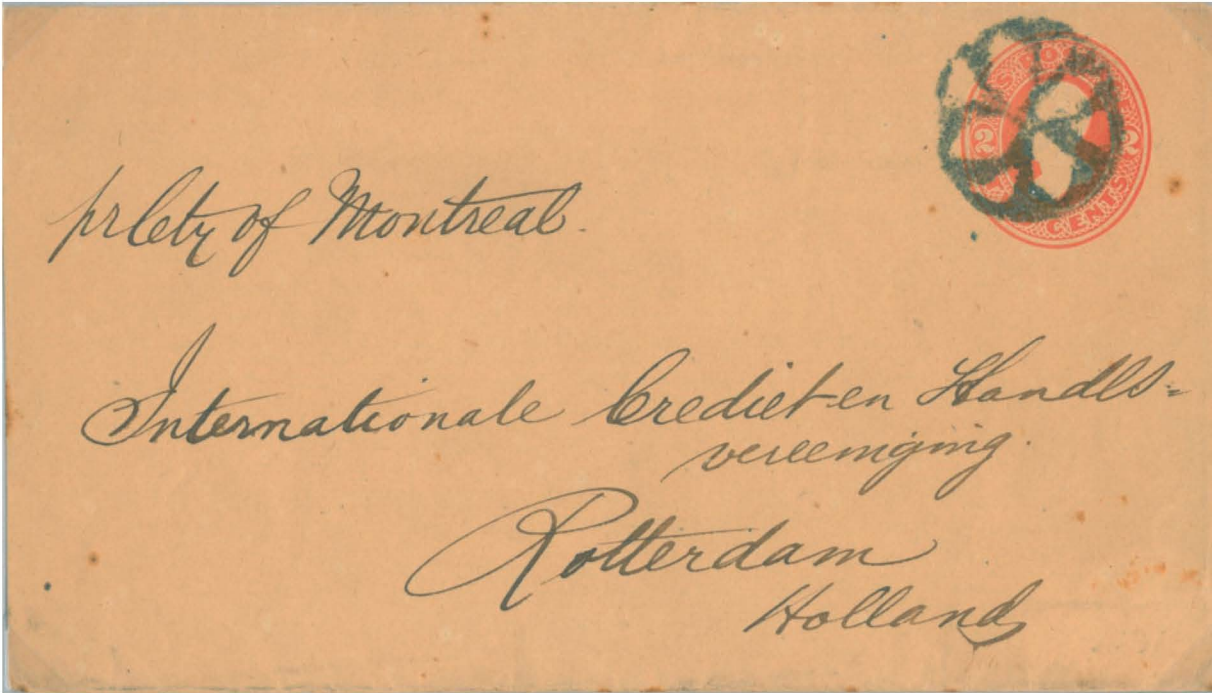 2
2
CENTS
pr City of Montreal.
Internationale Crediet en Handls=
vereeniging.
Rotterdam
Holland